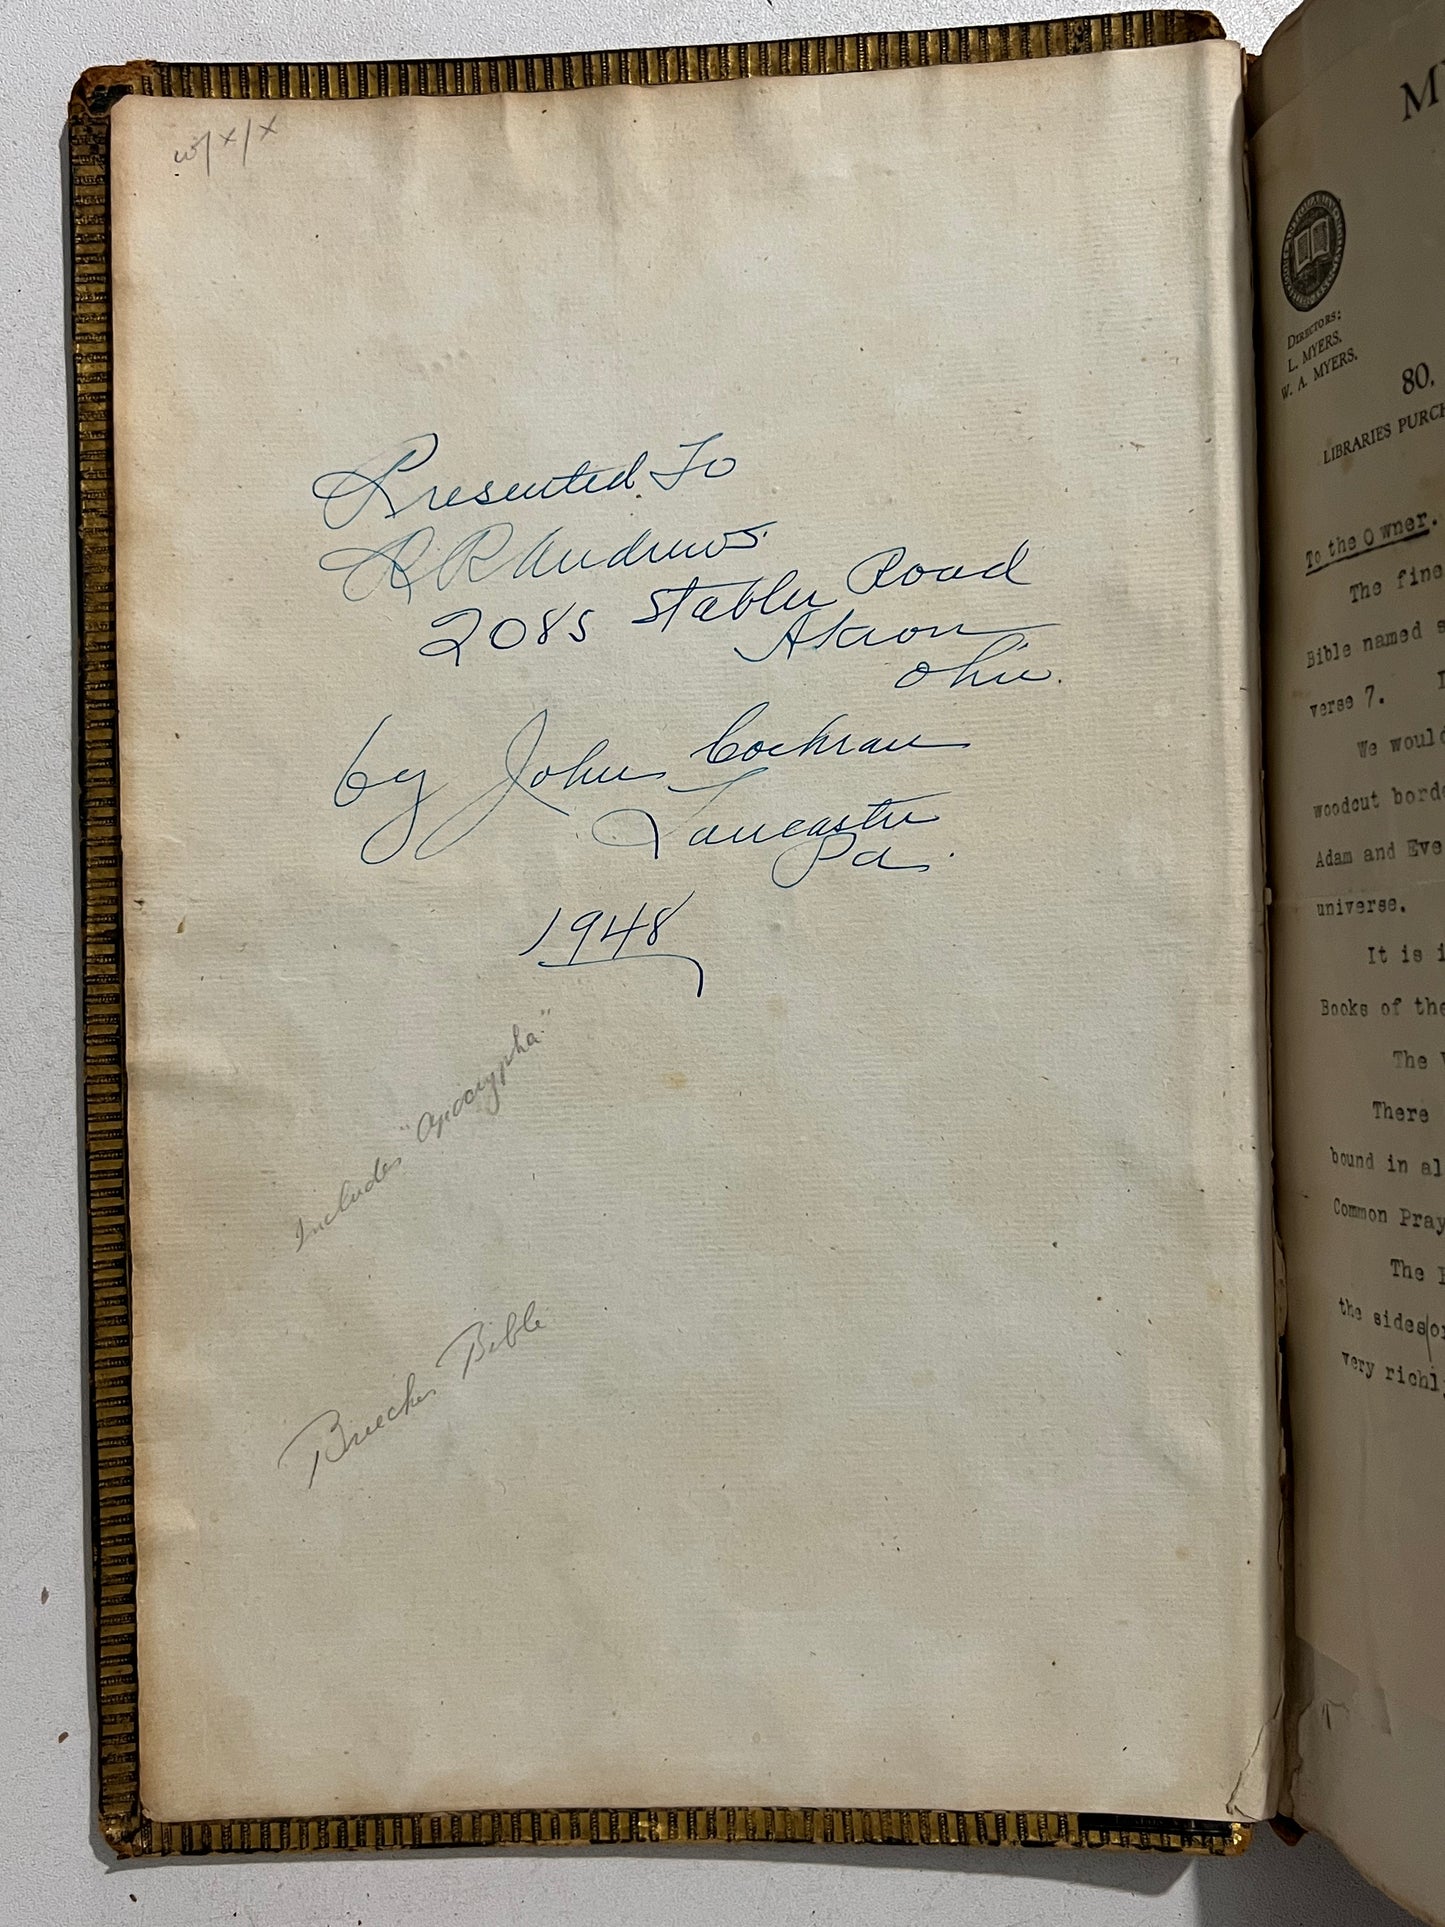 w/x/x
Presented To
R R Andrews.
2085 Stabler Road
Akron
Ohio.
by John Cochran
Lancaster
Pa.
1948
Includes "Apocrypha"
Breeches Bible
M
DIRECTORS:
L. MYERS.
W. A. MYERS.
80,
LIBRARIES PURCH
To the Owner.
The fine
Bible named s
verse 7. I
We would
woodcut borde
Adam and Eve
universe.
It is i
Books of the
The
There
bound in al
Common Pray
The
the sides or
very richl